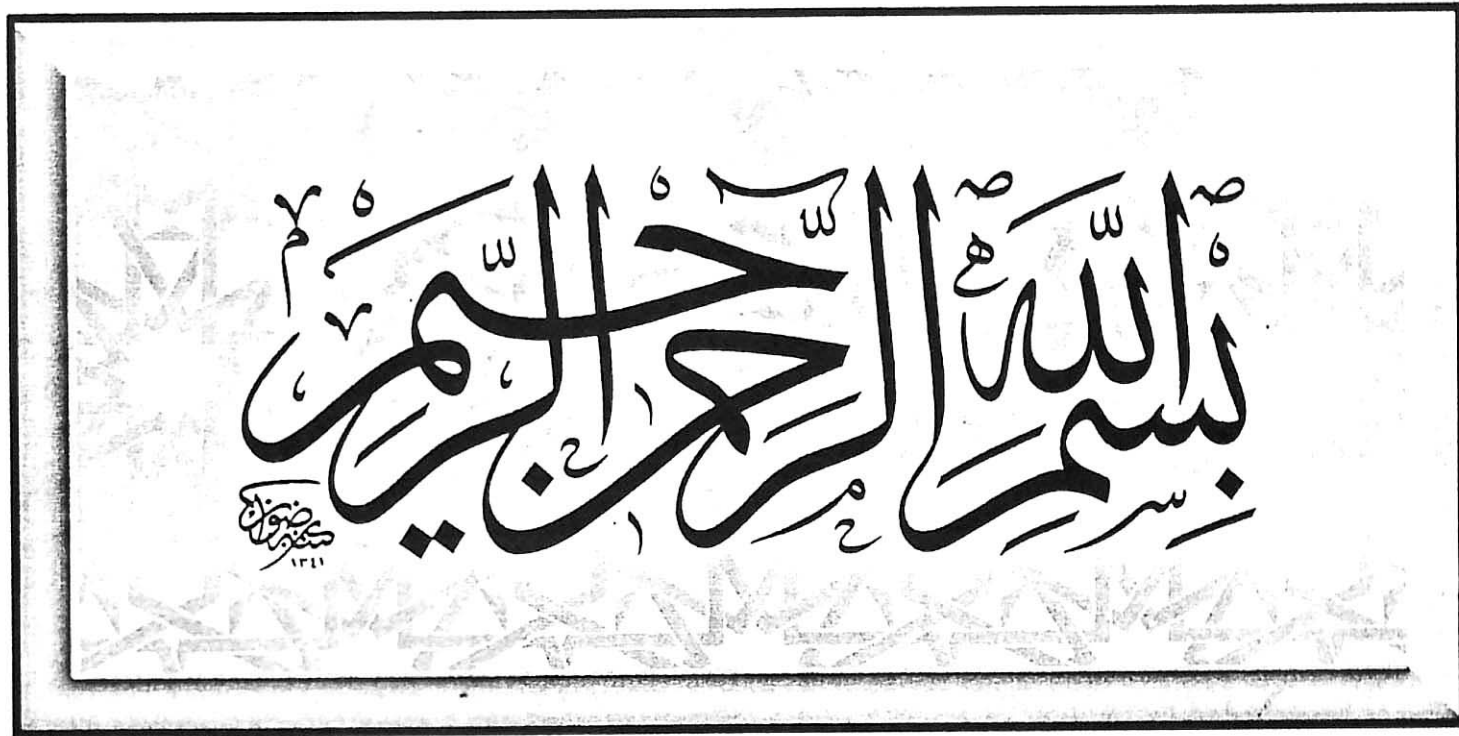 بِسْمِ اللَّهِ الرَّحْمَنِ الرَّحِيمِ
رضوان
١٣٤١